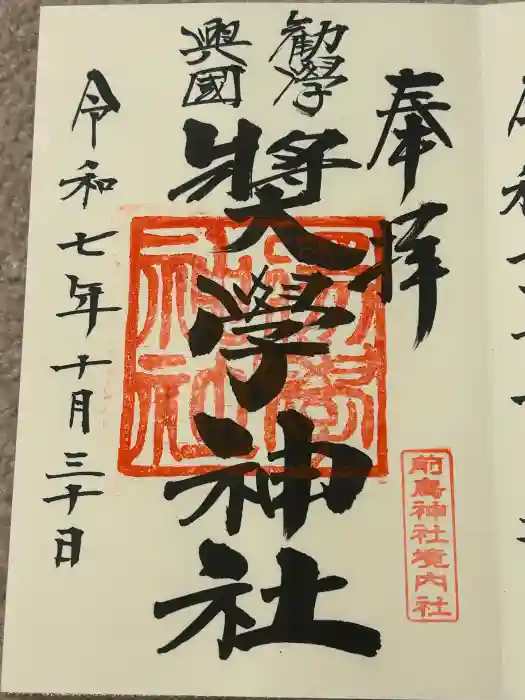 奉拝
勧學
興國
奨學神社
奨學神社
前鳥神社境内社
令和七年十月三十日